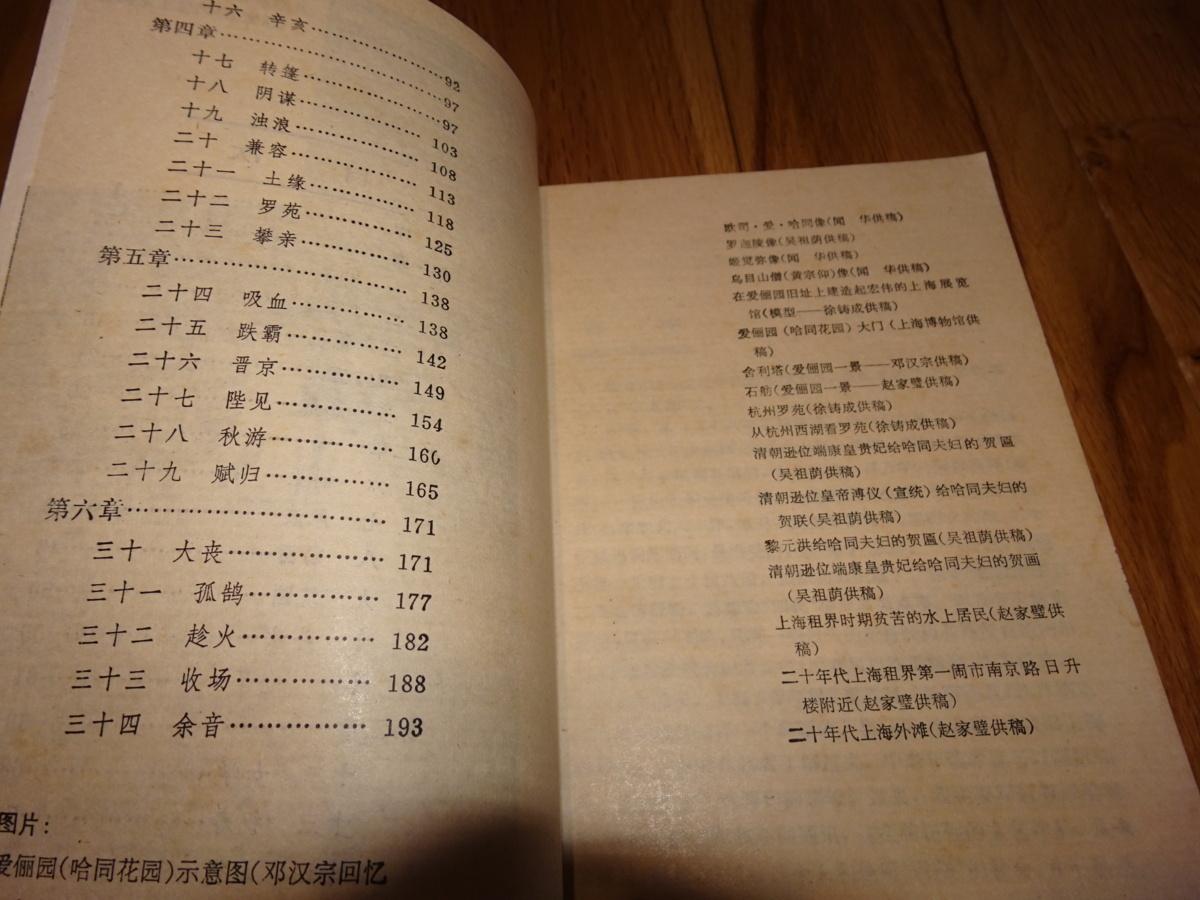 十六 辛亥……………………92
第四章……………………………97
十七 转篷……………………97
十八 阴谋……………………103
十九 浊浪……………………108
二十 兼容……………………113
二十一 土缘…………………118
二十二 罗苑…………………125
二十三 攀亲…………………130
第五章……………………………138
二十四 吸血…………………138
二十五 跌霸…………………142
二十六 晋京…………………149
二十七 陛见…………………154
二十八 秋游…………………160
二十九 赋归…………………165
第六章……………………………171
三十 大丧……………………171
三十一 孤鹄…………………177
三十二 趁火…………………182
三十三 收场…………………188
三十四 余音…………………193
图片：
爱俪园(哈同花园)示意图(邓汉宗回忆
欧司·爱·哈同像(闻 华供稿)
罗迦陵像(吴祖荫供稿)
姬觉弥像(闻 华供稿)
乌目山僧(黄宗仰)像(闻 华供稿)
在爱俪园旧址上建造起宏伟的上海展览
馆(模型——徐铸成供稿)
爱俪园(哈同花园)大门(上海博物馆供
稿)
舍利塔(爱俪园一景——邓汉宗供稿)
石舫(爱俪园一景——赵家璧供稿)
杭州罗苑(徐铸成供稿)
从杭州西湖看罗苑(徐铸成供稿)
清朝逊位端康皇贵妃给哈同夫妇的贺匾
(吴祖荫供稿)
清朝逊位皇帝溥仪(宣统)给哈同夫妇的
贺联(吴祖荫供稿)
黎元洪给哈同夫妇的贺匾(吴祖荫供稿)
清朝逊位端康皇贵妃给哈同夫妇的贺画
(吴祖荫供稿)
上海租界时期贫苦的水上居民(赵家璧供
稿)
二十年代上海租界第一闹市南京路日升
楼附近(赵家璧供稿)
二十年代上海外滩(赵家璧供稿)